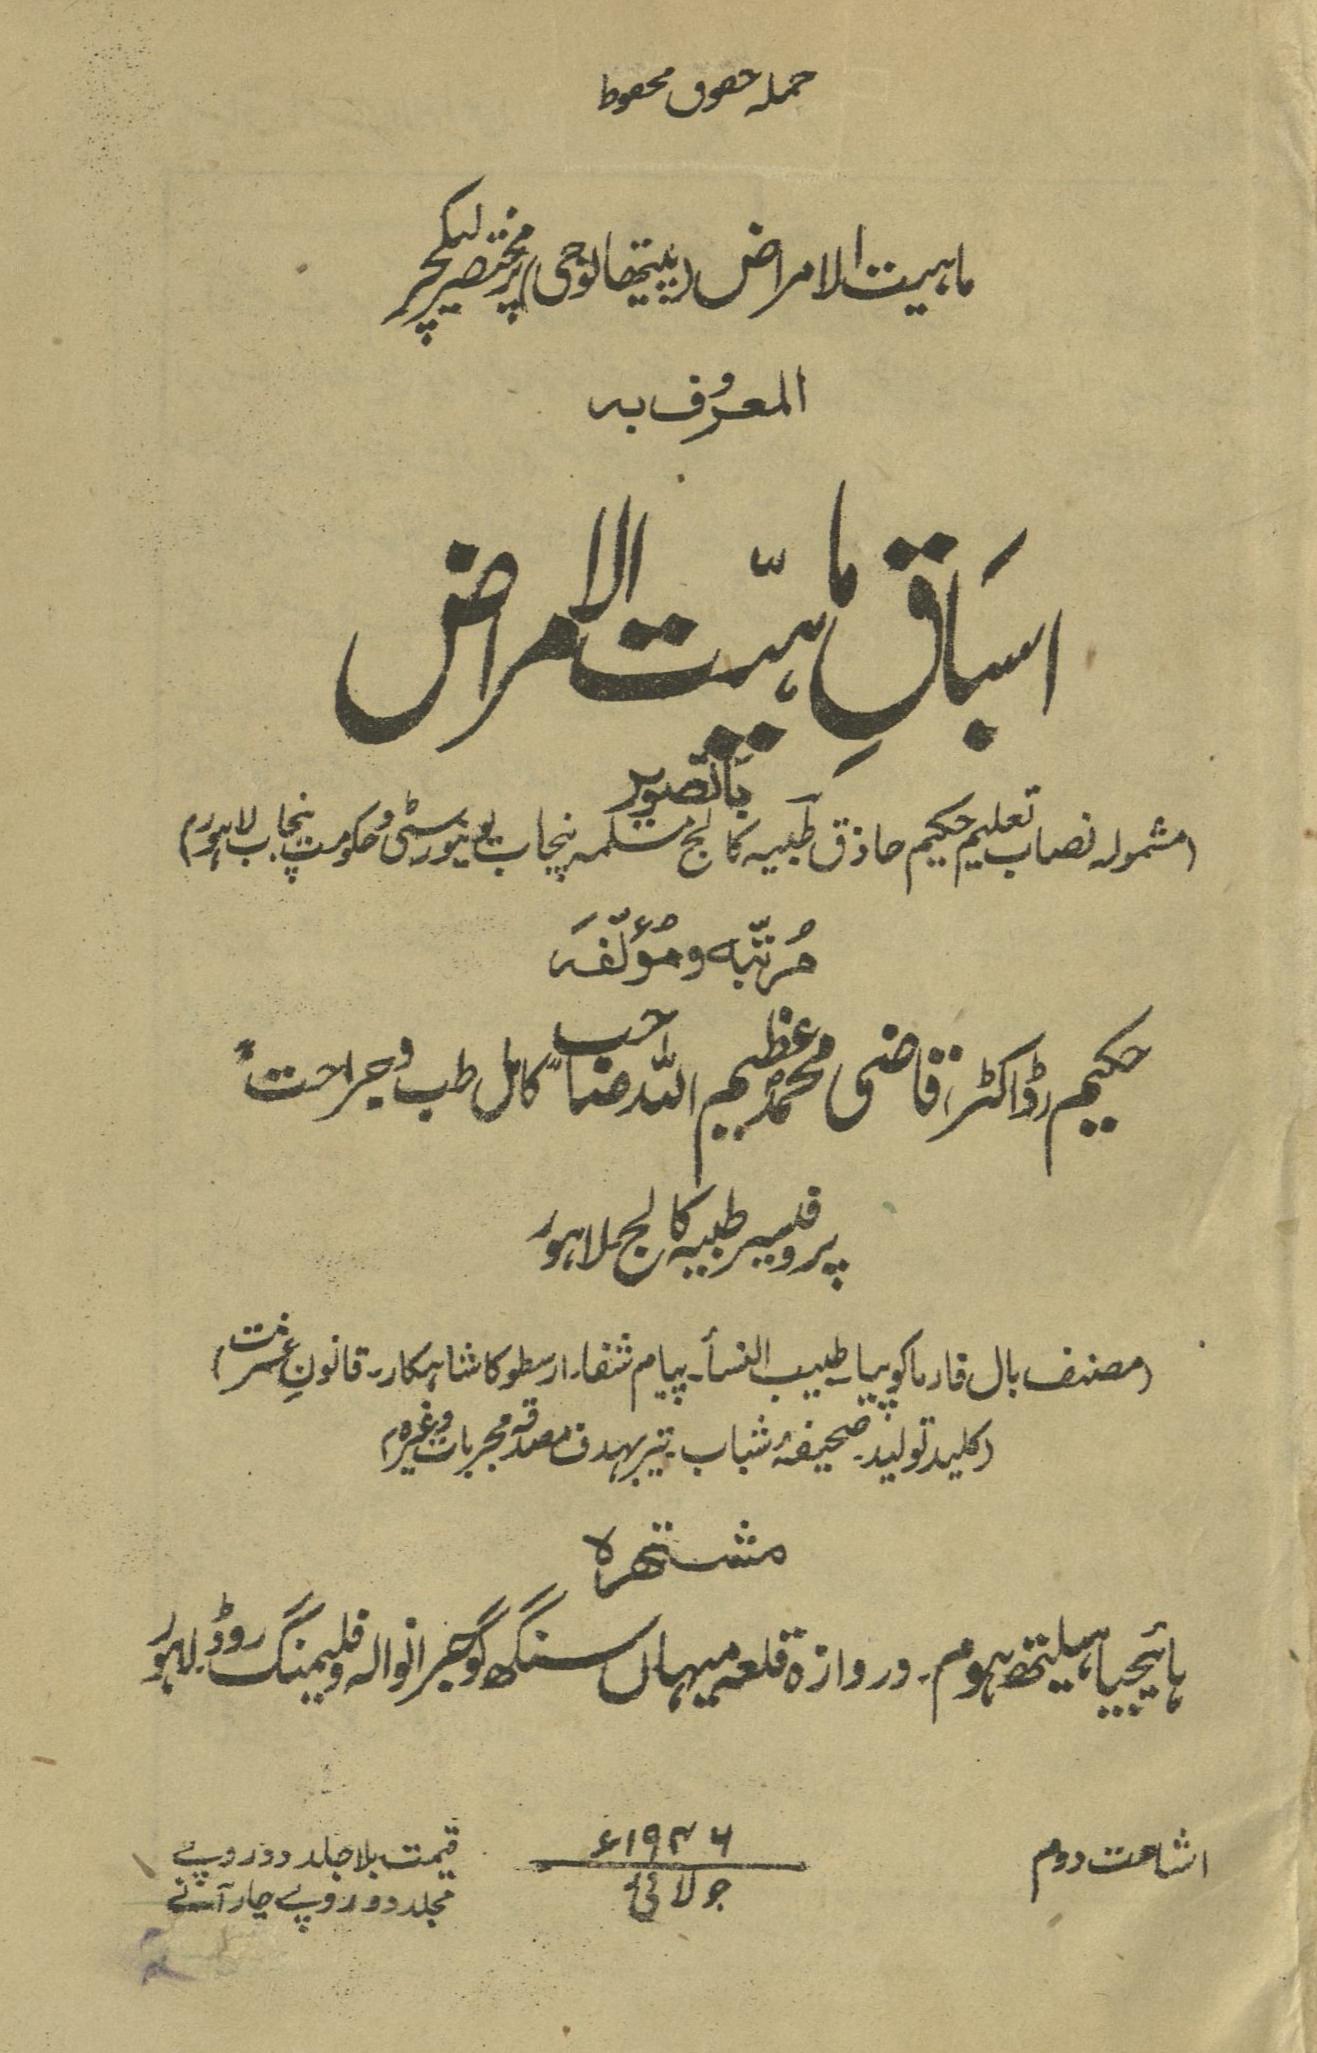 جملہ حقوق محفوظ
ماہیت الامراض (پیتھالوجی) پر مختصر لیکچر
المعروف بہ
اسباقِ ماہیّت الامراض
باتصویر
(مشمولہ نصاب تعلیم حکیم حاذق طبیہ کالج مسلمہ پنجاب یونیورسٹی و حکومت پنجاب لاہور)
مُرتّبہ و مُؤلّفہ
حکیم (ڈاکٹر) قاضی محمد عظیم اللہ صاحب "کامل طب و جراحت"
پروفیسر طبیہ کالج لاہور
(مصنف بال فارماکوپیا۔ طبیب النسأ۔ پیام شفا۔ ارسطو کا شاہکار۔ قانونِ عشرت)
(کلید تولید۔ صحیفۂ شباب۔ تیر بہدف مصدقہ مجربات وغیرہ)
مشتہرہ
ہائیجیا ہیلتھ ہوم۔ دروازہ قلعہ میہاں سنگھ گوجرانوالہ و فلیمنگ روڈ۔ لاہور
اشاعت دوم
۱۹۴۶ء
جولائی
قیمت بلا جلد دو روپے
مجلد دو روپے چار آنے